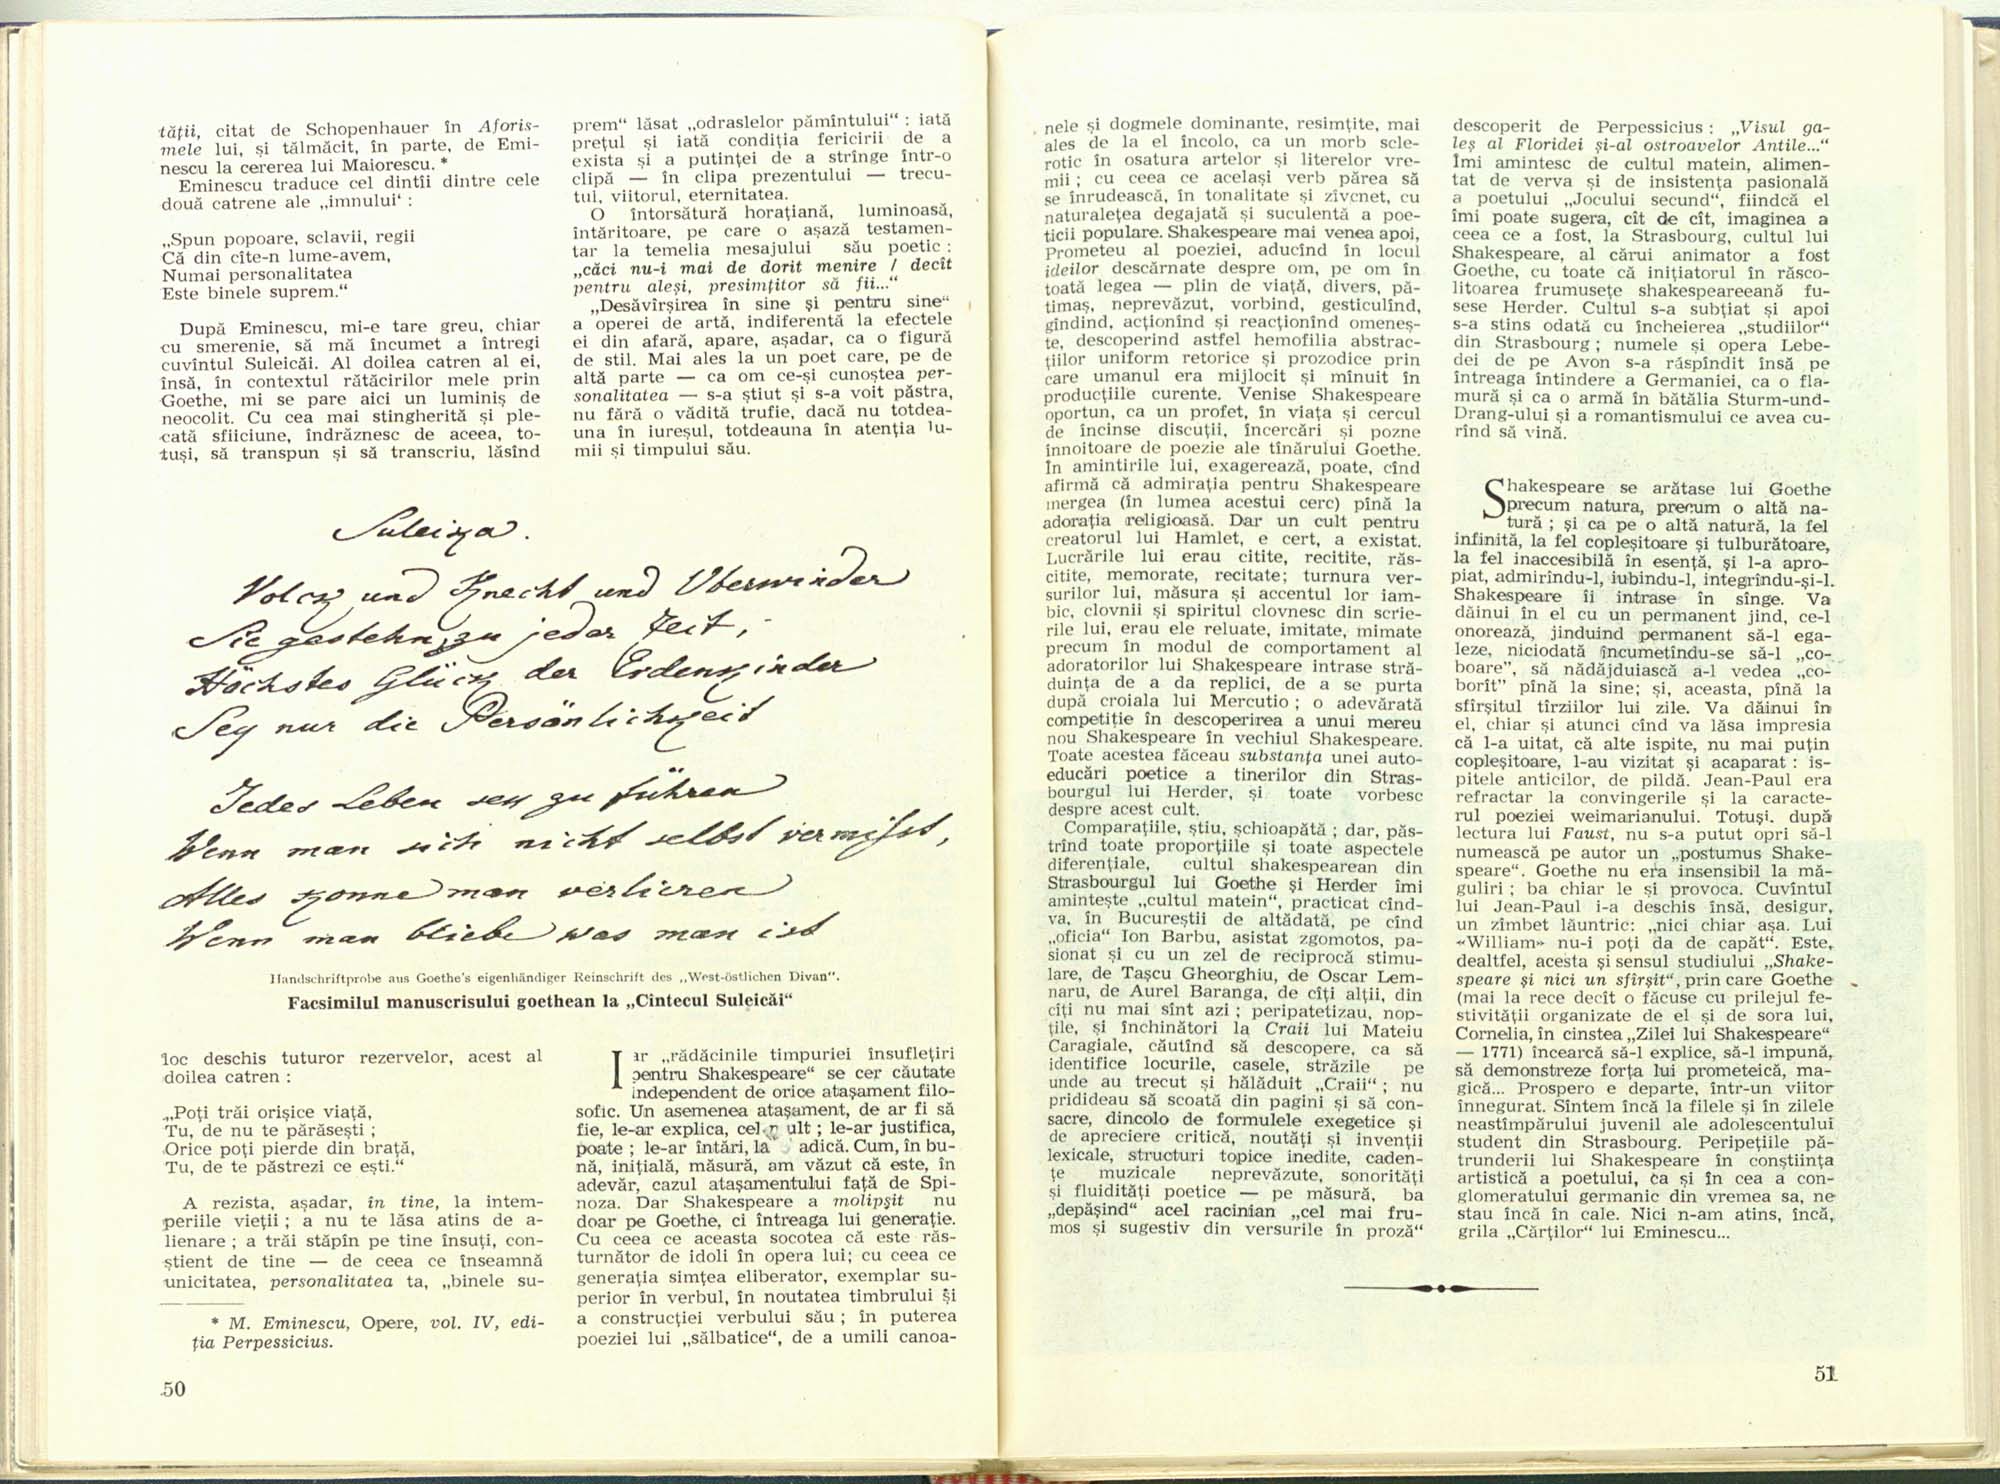 tății, citat de Schopenhauer în Aforis-
mele lui, și tălmăcit, în parte, de Emi-
nescu la cererea lui Maiorescu. *
Eminescu traduce cel dintîi dintre cele
două catrene ale „imnului‘ :
„Spun popoare, sclavii, regii
Că din cîte-n lume-avem,
Numai personalitatea
Este binele suprem.“
După Eminescu, mi-e tare greu, chiar
cu smerenie, să mă încumet a întregi
cuvîntul Suleicăi. Al doilea catren al ei,
însă, în contextul rătăcirilor mele prin
Goethe, mi se pare aici un luminiș de
neocolit. Cu cea mai stingherită și ple-
cată sfiiciune, îndrăznesc de aceea, to-
tuși, să transpun și să transcriu, lăsînd
prem“ lăsat „odraslelor pămîntului“ : iată
prețul și iată condiția fericirii de a
exista și a putinței de a strînge într-o
clipă — în clipa prezentului — trecu-
tul, viitorul, eternitatea.
O întorsătură horațiană, luminoasă,
întăritoare, pe care o așază testamen-
tar la temelia mesajului său poetic :
„căci nu-i mai de dorit menire / decît
pentru aleși, presimțitor să fii...“
„Desăvîrșirea în sine și pentru sine“
a operei de artă, indiferentă la efectele
ei din afară, apare, așadar, ca o figură
de stil. Mai ales la un poet care, pe de
altă parte — ca om ce-și cunoștea per-
sonalitatea — s-a știut și s-a voit păstra,
nu fără o vădită trufie, dacă nu totdea-
una în iureșul, totdeauna în atenția lu-
mii și timpului său.
Suleika.
Volck und Knecht und Uberwinder
Sie gestehn, zu jeder Zeit,
Höchstes Glück der Erdenkinder
Sey nur die Persönlichkeit
Jedes Leben sey zu führen
Wenn man sich nicht selbst vermisst,
Alles könne man verlieren
Wenn man bliebe was man ist
Handschriftprobe aus Goethe's eigenhändiger Reinschrift des „West-östlichen Divan“.
Facsimilul manuscrisului goethean la „Cîntecul Suleicăi“
loc deschis tuturor rezervelor, acest al
doilea catren :
„Poți trăi orișice viață,
Tu, de nu te părăsești ;
Orice poți pierde din brață,
Tu, de te păstrezi ce ești.“
A rezista, așadar, în tine, la intem-
periile vieții ; a nu te lăsa atins de a-
lienare ; a trăi stăpîn pe tine însuți, con-
știent de tine — de ceea ce înseamnă
unicitatea, personalitatea ta, „binele su-
* M. Eminescu, Opere, vol. IV, edi-
ția Perpessicius.
50
Iar „rădăcinile timpuriei însuflețiri
pentru Shakespeare“ se cer căutate
independent de orice atașament filo-
sofic. Un asemenea atașament, de ar fi să
fie, le-ar explica, cel mult ; le-ar justifica,
poate ; le-ar întări, la adică. Cum, în bu-
nă, inițială, măsură, am văzut că este, în
adevăr, cazul atașamentului față de Spi-
noza. Dar Shakespeare a molipsit nu
doar pe Goethe, ci întreaga lui generație.
Cu ceea ce aceasta socotea că este răs-
turnător de idoli în opera lui; cu ceea ce
generația simțea eliberator, exemplar su-
perior în verbul, în noutatea timbrului și
a construcției verbului său ; în puterea
poeziei lui „sălbatice“, de a umili canoa-
nele și dogmele dominante, resimțite, mai
ales de la el încolo, ca un morb scle-
rotic în osatura artelor și literelor vre-
mii ; cu ceea ce același verb părea să
se înrudească, în tonalitate și zîvcnet, cu
naturalețea degajată și suculentă a poe-
ticii populare. Shakespeare mai venea apoi,
Prometeu al poeziei, aducînd în locul
ideilor descărnate despre om, pe om în
toată legea — plin de viață, divers, pă-
timaș, neprevăzut, vorbind, gesticulînd,
gîndind, acționînd și reacționînd omeneș-
te, descoperind astfel hemofilia abstrac-
țiilor uniform retorice și prozodice prin
care umanul era mijlocit și mînuit în
producțiile curente. Venise Shakespeare
oportun, ca un profet, în viața și cercul
de încinse discuții, încercări și pozne
înnoitoare de poezie ale tînărului Goethe.
În amintirile lui, exagerează, poate, cînd
afirmă că admirația pentru Shakespeare
mergea (în lumea acestui cerc) pînă la
adorația religioasă. Dar un cult pentru
creatorul lui Hamlet, e cert, a existat.
Lucrările lui erau citite, recitite, răs-
citite, memorate, recitate; turnura ver-
surilor lui, măsura și accentul lor iam-
bic, clovnii și spiritul clovnesc din scrie-
rile lui, erau ele reluate, imitate, mimate
precum în modul de comportament al
adoratorilor lui Shakespeare intrase stră-
duința de a da replici, de a se purta
după croiala lui Mercutio ; o adevărată
competiție în descoperirea a unui mereu
nou Shakespeare în vechiul Shakespeare.
Toate acestea făceau substanța unei auto-
educări poetice a tinerilor din Stras-
bourgul lui Herder, și toate vorbesc
despre acest cult.
Comparațiile, știu, șchioapătă ; dar, păs-
trînd toate proporțiile și toate aspectele
diferențiale, cultul shakespearean din
Strasbourgul lui Goethe și Herder îmi
amintește „cultul matein“, practicat cînd-
va, în Bucureștii de altădată, pe cînd
„oficia“ Ion Barbu, asistat zgomotos, pa-
sionat și cu un zel de reciprocă stimu-
lare, de Tașcu Gheorghiu, de Oscar Lem-
naru, de Aurel Baranga, de cîți alții, din
cîți nu mai sînt azi ; peripatetizau, nop-
țile, și închinători la Craii lui Mateiu
Caragiale, căutînd să descopere, ca să
identifice locurile, casele, străzile pe
unde au trecut și hălăduit „Craii“ ; nu
pridideau să scoată din pagini și să con-
sacre, dincolo de formulele exegetice și
de apreciere critică, noutăți și invenții
lexicale, structuri topice inedite, caden-
țe muzicale neprevăzute, sonorități
și fluidități poetice — pe măsură, ba
„depășind“ acel racinian „cel mai fru-
mos și sugestiv din versurile în proză“
descoperit de Perpessicius : „Visul ga-
leș al Floridei și-al ostroavelor Antile...“
Îmi amintesc de cultul matein, alimen-
tat de verva și de insistența pasională
a poetului „Jocului secund“, fiindcă el
îmi poate sugera, cît de cît, imaginea a
ceea ce a fost, la Strasbourg, cultul lui
Shakespeare, al cărui animator a fost
Goethe, cu toate că inițiatorul în răsco-
litoarea frumusețe shakespeareeană fu-
sese Herder. Cultul s-a subțiat și apoi
s-a stins odată cu încheierea „studiilor“
din Strasbourg ; numele și opera Lebe-
dei de pe Avon s-a răspîndit însă pe
întreaga întindere a Germaniei, ca o fla-
mură și ca o armă în bătălia Sturm-und-
Drang-ului și a romantismului ce avea cu-
rînd să vină.
Shakespeare se arătase lui Goethe
precum natura, precum o altă na-
tură ; și ca pe o altă natură, la fel
infinită, la fel copleșitoare și tulburătoare,
la fel inaccesibilă în esență, și l-a apro-
piat, admirîndu-l, iubindu-l, integrîndu-și-l.
Shakespeare îi intrase în sînge. Va
dăinui în el cu un permanent jind, ce-l
onorează, jinduind permanent să-l ega-
leze, niciodată încumetîndu-se să-l „co-
boare”, să nădăjduiască a-l vedea „co-
borît” pînă la sine; și, aceasta, pînă la
sfîrșitul tîrziilor lui zile. Va dăinui în
el, chiar și atunci cînd va lăsa impresia
că l-a uitat, că alte ispite, nu mai puțin
copleșitoare, l-au vizitat și acaparat : is-
pitele anticilor, de pildă. Jean-Paul era
refractar la convingerile și la caracte-
rul poeziei weimarianului. Totuși. după
lectura lui Faust, nu s-a putut opri să-l
numească pe autor un „postumus Shake-
speare“. Goethe nu era insensibil la mă-
guliri ; ba chiar le și provoca. Cuvîntul
lui Jean-Paul i-a deschis însă, desigur,
un zîmbet lăuntric: „nici chiar așa. Lui
«William» nu-i poți da de capăt“. Este,
dealtfel, acesta și sensul studiului „Shake-
speare și nici un sfîrșit“, prin care Goethe
(mai la rece decît o făcuse cu prilejul fe-
stivității organizate de el și de sora lui,
Cornelia, în cinstea „Zilei lui Shakespeare“
— 1771) încearcă să-l explice, să-l impună,
să demonstreze forța lui prometeică, ma-
gică... Prospero e departe, într-un viitor
înnegurat. Sîntem încă la filele și în zilele
neastîmpărului juvenil ale adolescentului
student din Strasbourg. Peripețiile pă-
trunderii lui Shakespeare în conștiința
artistică a poetului, ca și în cea a con-
glomeratului germanic din vremea sa, ne
stau încă în cale. Nici n-am atins, încă,
grila „Cărților“ lui Eminescu...
51